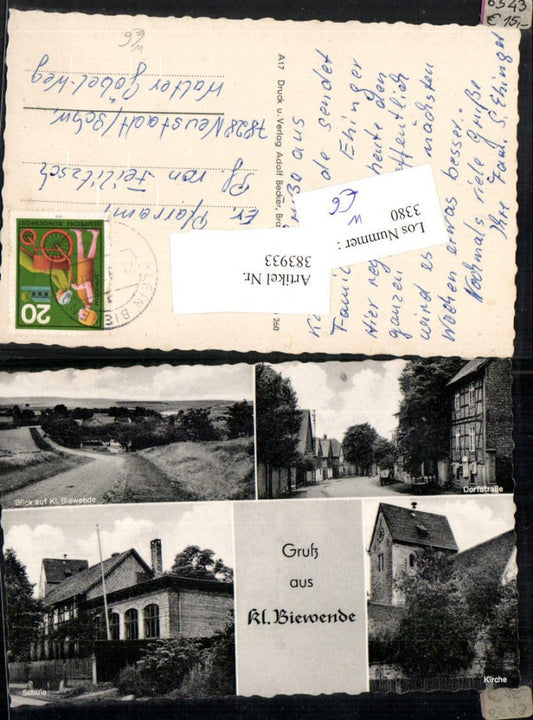 6343
€ 15,-
W
E6
Ev. Pfarramt
Pf. von Feilitzsch
7828 Neustadt/Schw.
Walter Göbel-Weg
DEUTSCHE BUNDESPOST
20
A17 Druck u. Verlag Adolf Becker, Bra
260
Grüße aus
de sendet
Famil Ehinger
Hier reg heute den
ganzen
wird es nächsten
Wochen etwas besser.
Nochmals viele Grüße
Ihre Fam. S. Ehinger
Los Nummer :
3380
W
E6
Artikel Nr.
383933
Blick auf Kl. Biewende
Dorfstraße
Schule
Gruß
aus
Kl. Biewende
Kirche